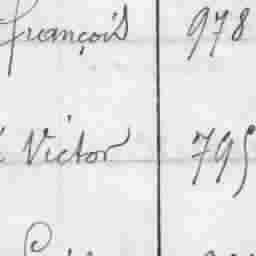 françois 978
Victor 795